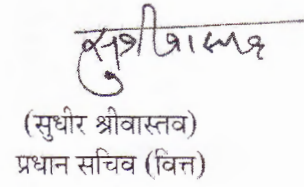 (सुधीर श्रीवास्तव)
प्रधान सचिव (वित्त)